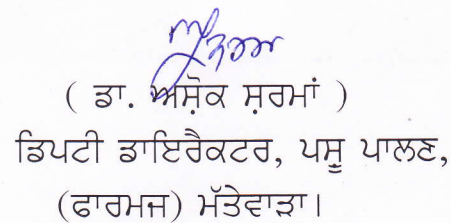 ( ਡਾ. ਅਸ਼ੋਕ ਸ਼ਰਮਾਂ )
ਡਿਪਟੀ ਡਾਇਰੈਕਟਰ, ਪਸ਼ੂ ਪਾਲਣ,
(ਫਾਰਮਜ) ਮੱਤੇਵਾੜਾ।